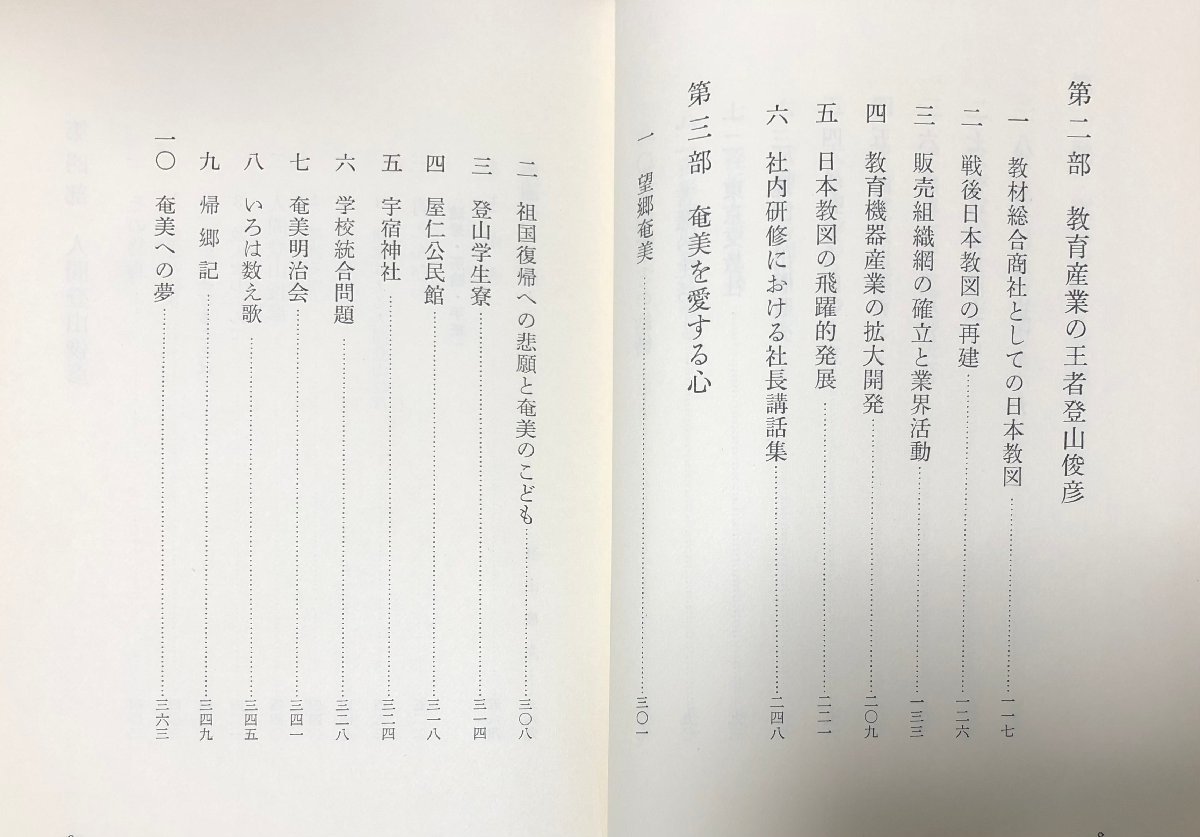 第二部　教育産業の王者登山俊彦
一　教材総合商社としての日本教図…………一一七
二　戦後日本教図の再建…………一二六
三　販売組織網の確立と業界活動…………一三三
四　教育機器産業の拡大開発…………二〇九
五　日本教図の飛躍的発展…………二二一
六　社内研修における社長講話集…………二四八
第三部　奄美を愛する心
一　望郷奄美…………三〇一
二　祖国復帰への悲願と奄美のこども…………三〇八
三　登山学生寮…………三一四
四　屋仁公民館…………三一八
五　宇宿神社…………三二四
六　学校統合問題…………三二八
七　奄美明治会…………三四一
八　いろは数え歌…………三四五
九　帰郷記…………三四九
一〇　奄美への夢…………三六三